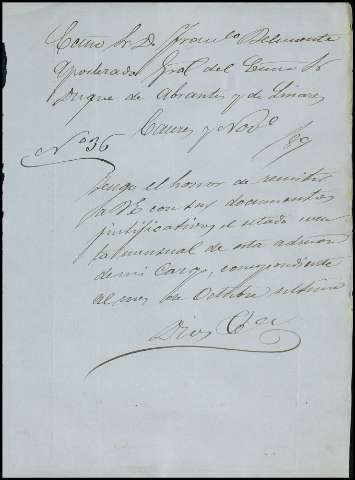 Excmo Sr. D. Franco Belmonte
Apoderado Gral del Excmo Sr
Duque de Abrantes y de Linares
Caceres y Nove /89
No 36
Tengo el honor de remitir
a VE con sus documentos
justificativos, el estado
mensual de esta admon
de mi cargo, correspondiente
al mes de Octubre ultimo
Dios &a